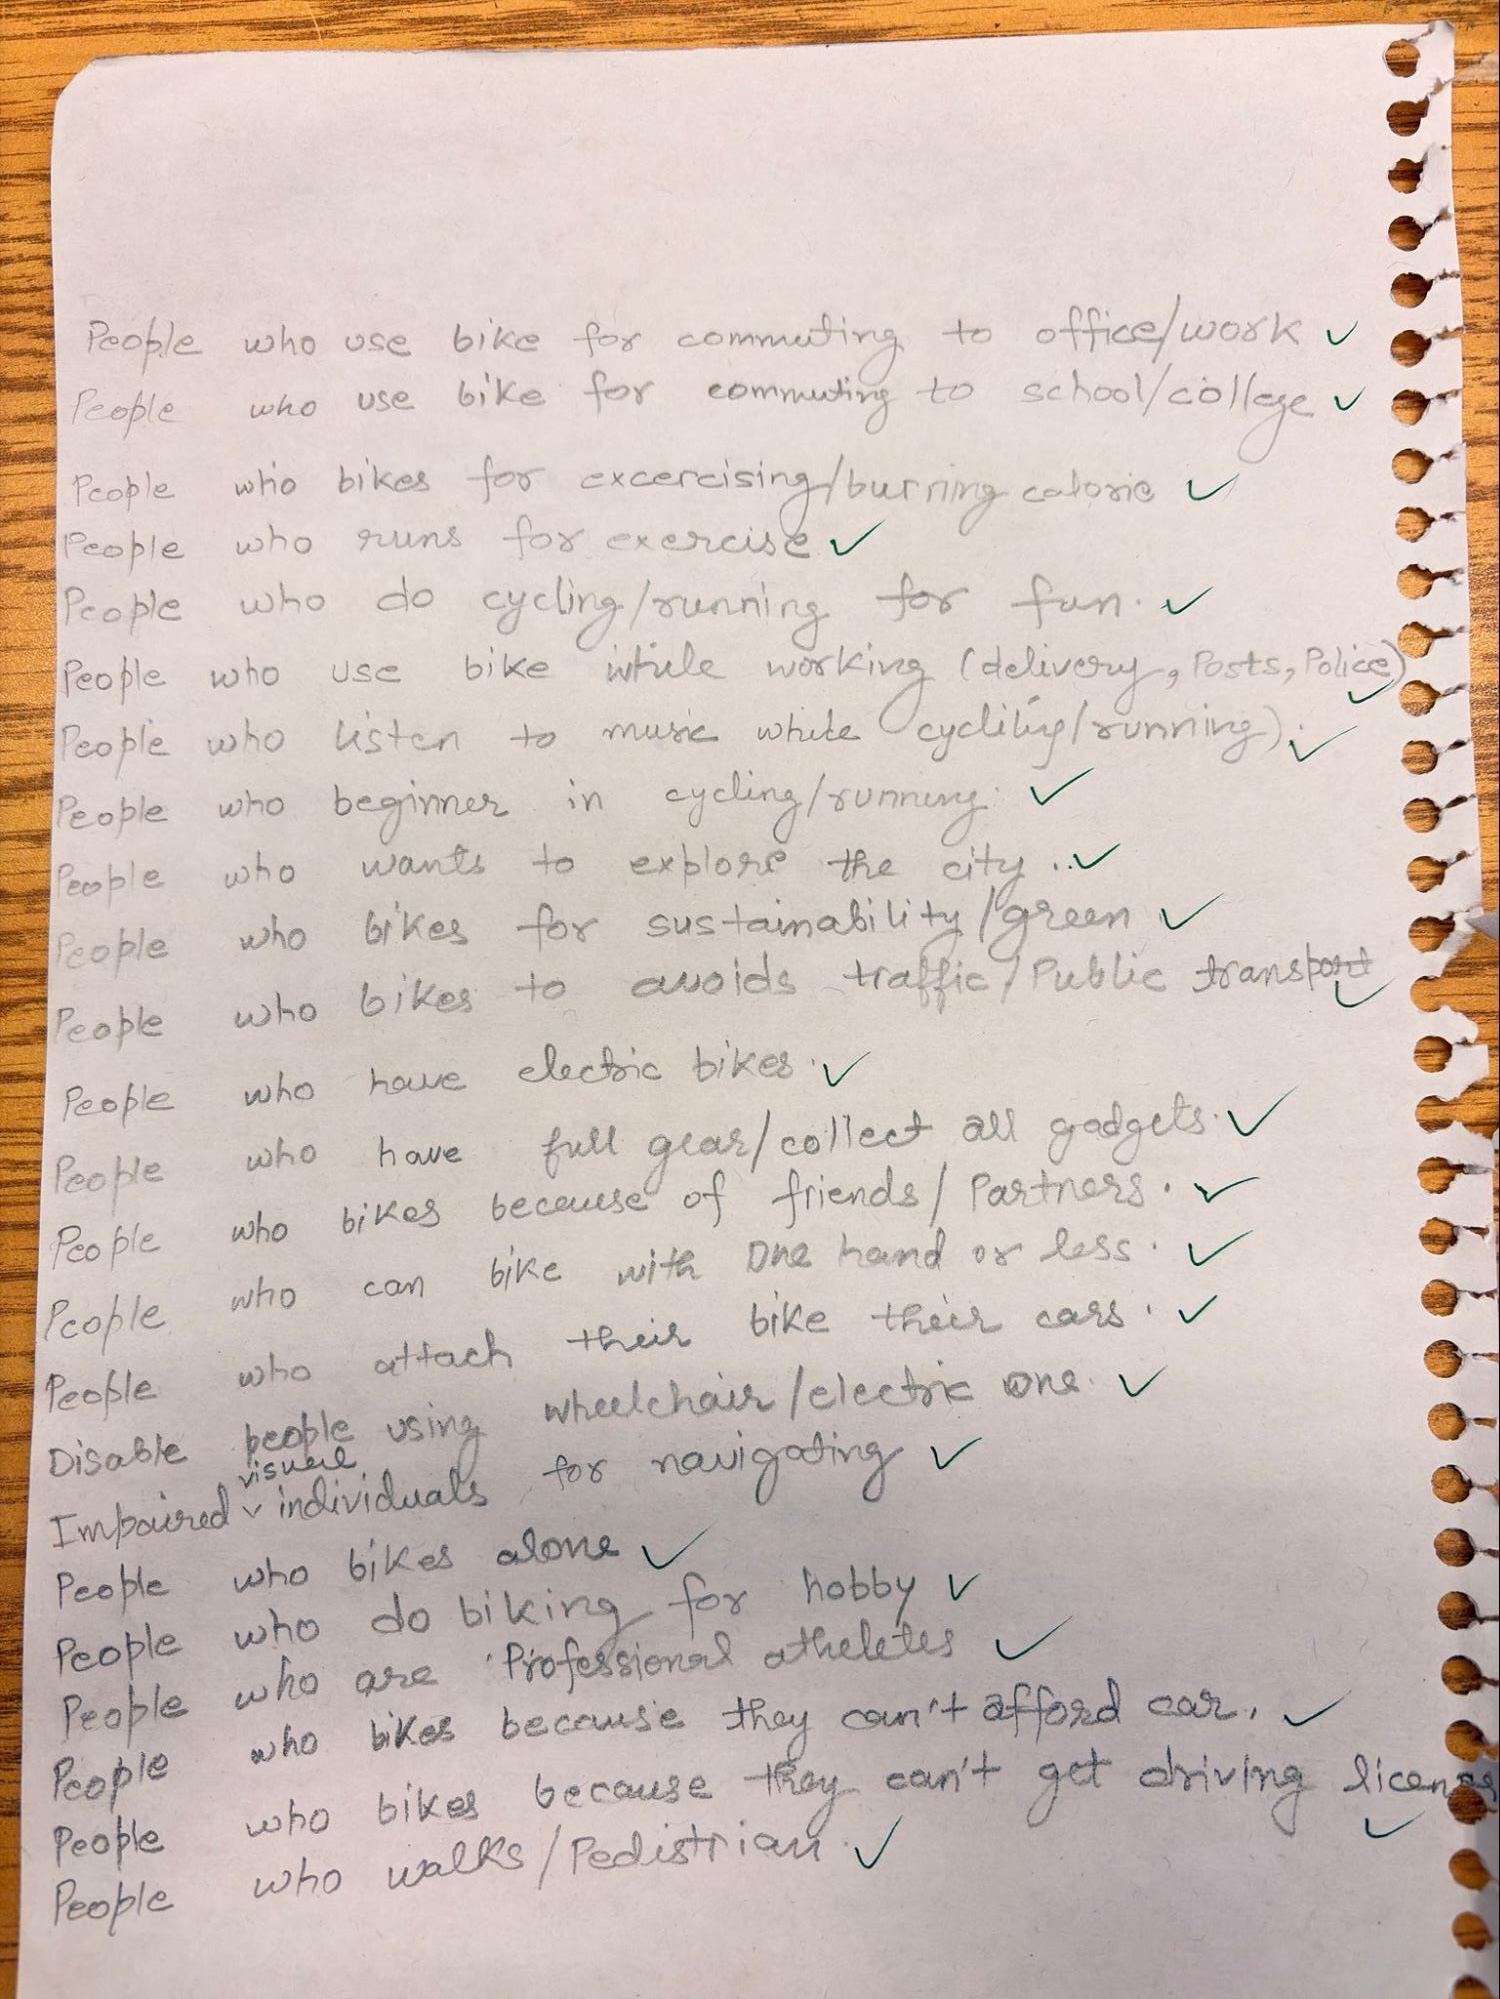 People who use bike for commuting to office/work ✓
People who use bike for commuting to school/college ✓
People who bikes for excercising/burning calorie ✓
People who runs for exercise ✓
People who do cycling/running for fun. ✓
People who use bike while working (delivery, Posts, Police) ✓
People who listen to music while cycling/running). ✓
People who beginner in cycling/running. ✓
People who wants to explore the city.. ✓
People who bikes for sustainability/green ✓
People who bikes to avoids traffic/Public transport ✓
People who have electric bikes. ✓
People who have full gear/collect all gadgets. ✓
People who bikes because of friends/Partners. ✓
People who can bike with one hand or less. ✓
People who attach their bike their cars. ✓
Disable people using wheelchair/electric one. ✓
Impaired visual individuals for navigating ✓
People who bikes alone ✓
People who do biking for hobby ✓
People who are Professional atheletes ✓
People who bikes because they can't afford car. ✓
People who bikes because they can't get driving license ✓
People who walks/Pedistrian. ✓